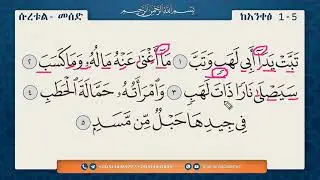 ሱረቱል- መሰድ
بِسْمِ اللَّهِ الرَّحْمَٰنِ الرَّحِيمِ
ከአንቀፅ 1-5
تَبَّتْ يَدَا أَبِي لَهَبٍ وَتَبَّ ١ مَا أَغْنَىٰ عَنْهُ مَالُهُ وَمَا كَسَبَ ٢
سَيَصْلَىٰ نَارًا ذَاتَ لَهَبٍ ٣ وَامْرَأَتُهُ حَمَّالَةَ الْحَطَبِ ٤
فِي جِيدِهَا حَبْلٌ مِّن مَّسَدٍ ٥